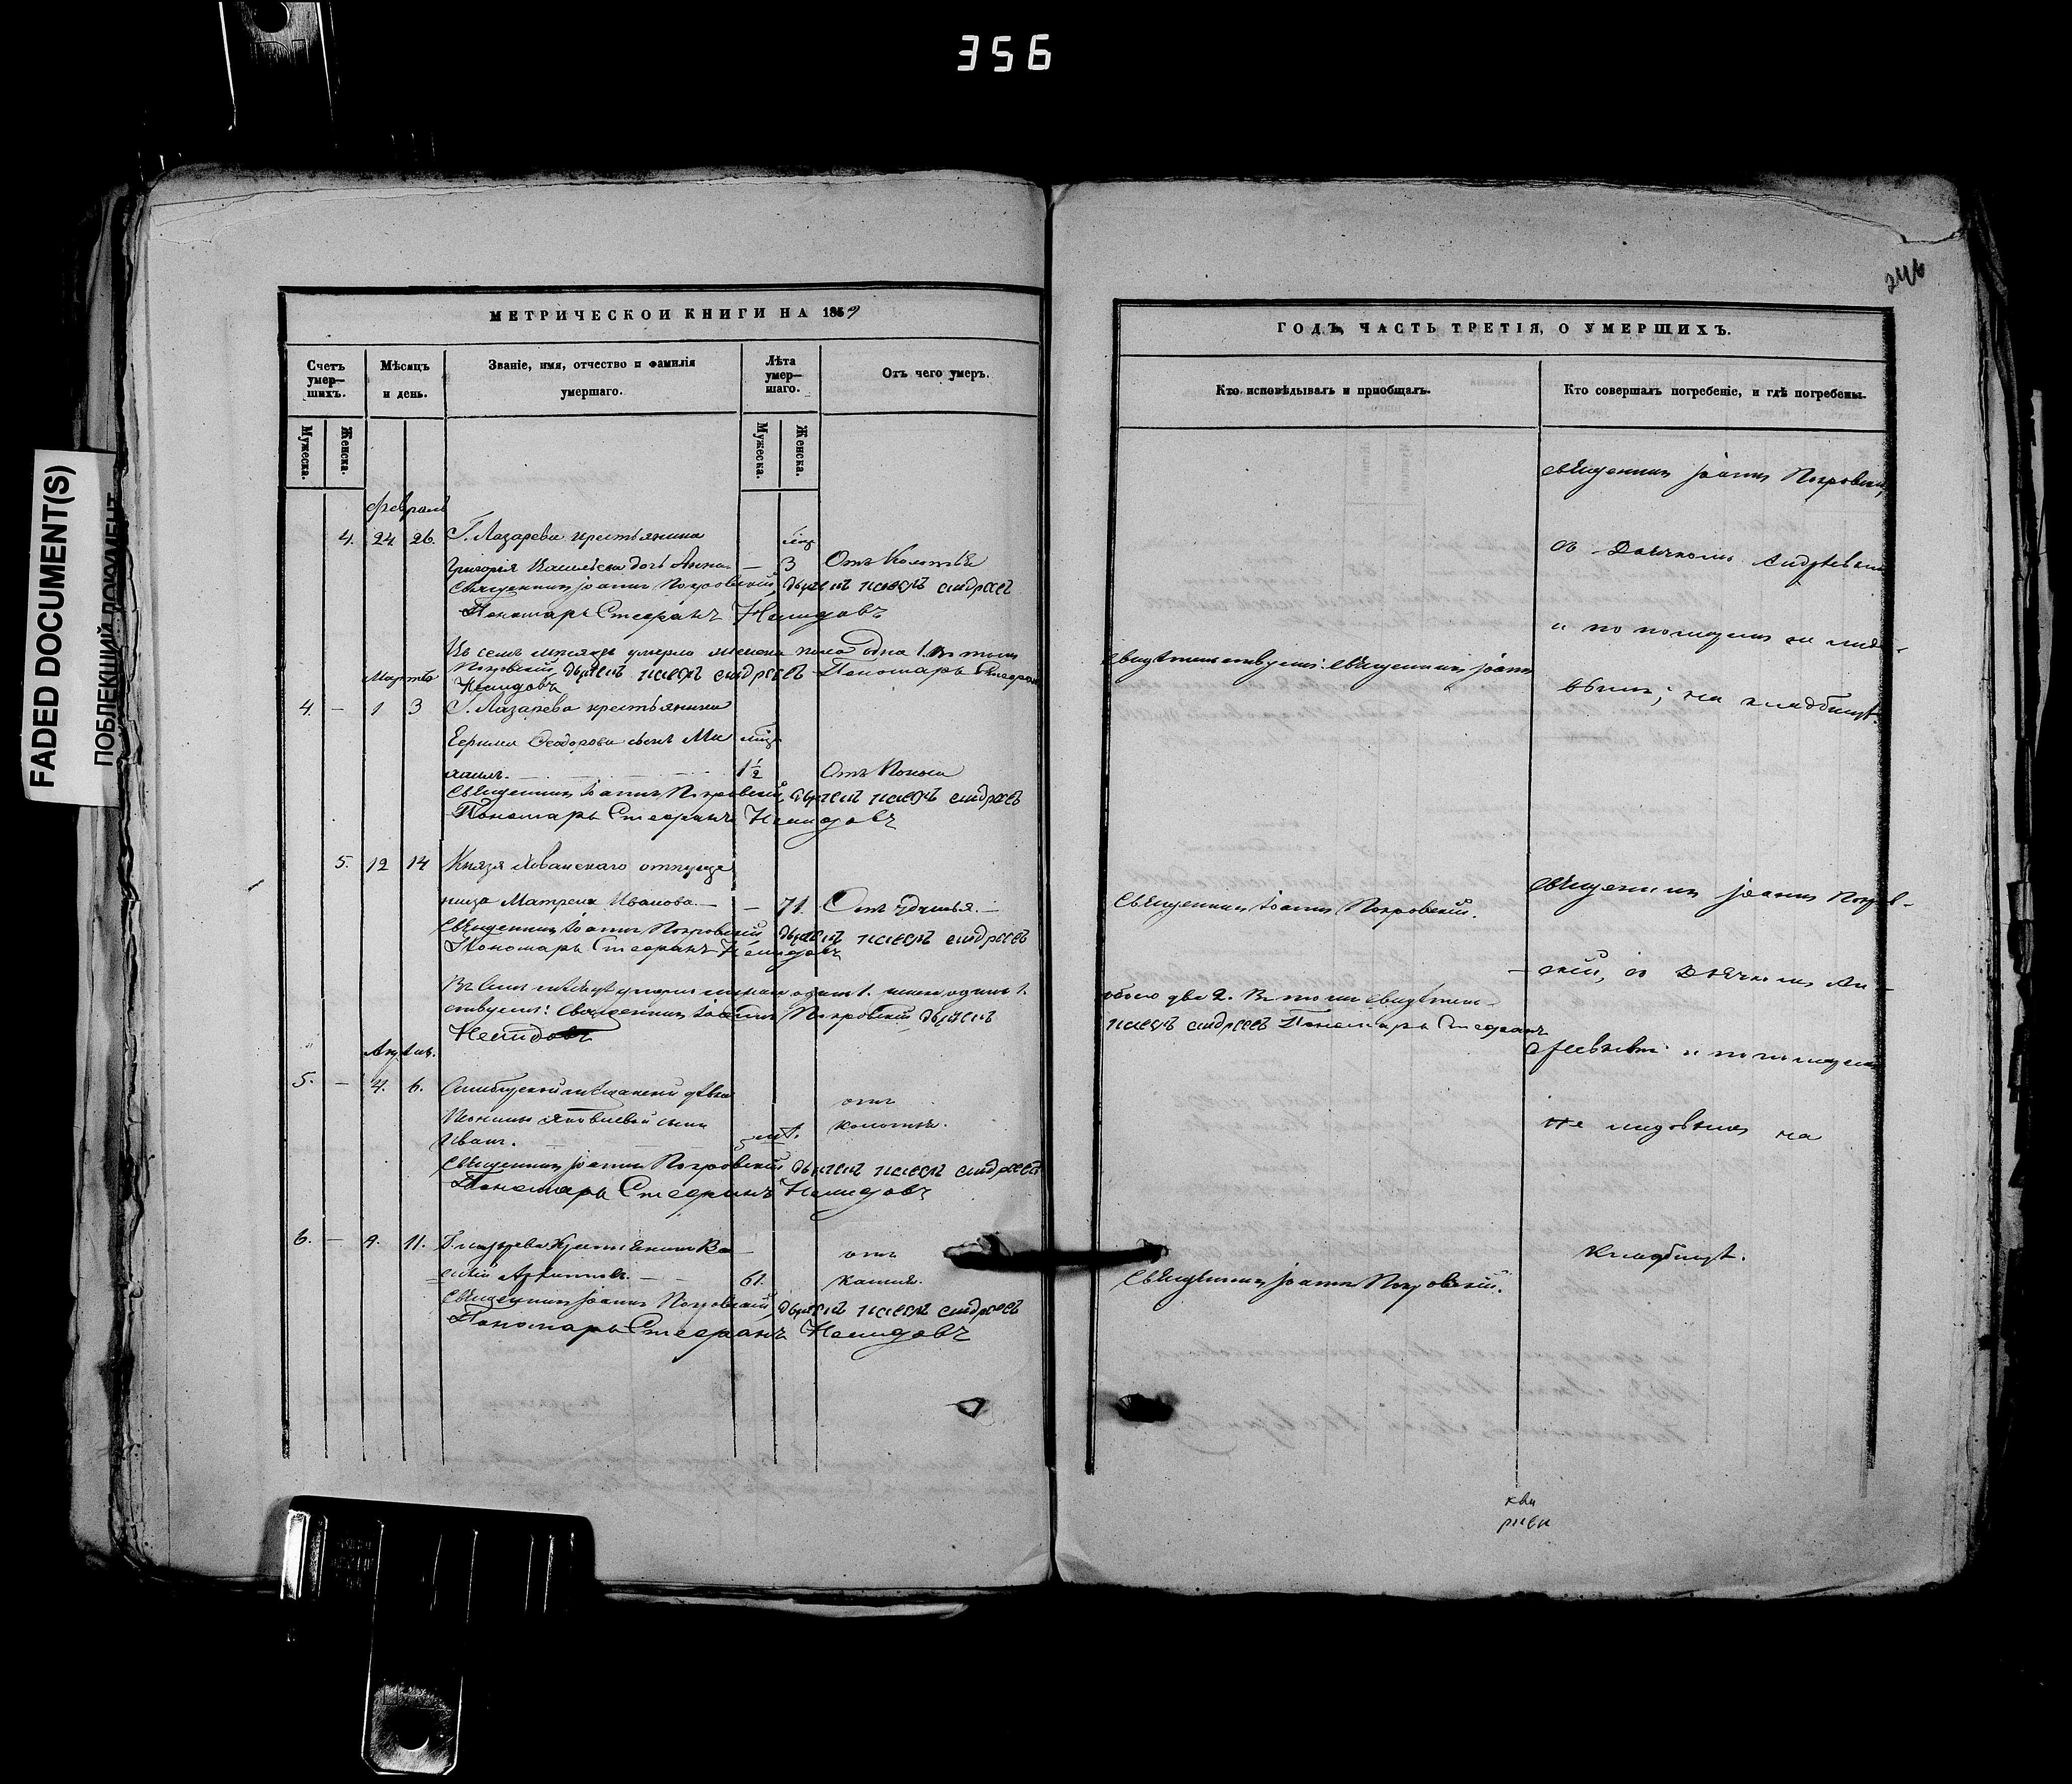 356
246
FADED DOCUMENT(S)
ПОБЛЕКШИЙ ДОКУМЕНТ
МЕТРИЧЕСКОЙ КНИГИ НА 1859
Счетъ умер-шихъ.
Мѣсяцъ и день.
Званіе, имя, отчество и фамилія умершаго.
Лѣта умер-шаго.
Отъ чего умеръ.
Мужеска.
Женска.
Мужеска.
Женска.
Февраль
4. 24 26. Г. Лазарева крестьянина
Григорія Васильева дочь Анна — 3 Отъ Колотья
Священникъ Іоаннъ Покровскій, дьячекъ андреевъ
Пономарь Стефанъ Немидовъ
Въ семъ мѣсяцѣ умерло женска пола одна 1. Въ томъ
Покровскій, дьячекъ андреевъ Пономарь Стефанъ
Немидовъ
Мартъ
4. — 1 3 Г. Лазарева крестьянина
Ефима Ѳеодорова сынъ Ми
хаилъ. 1 ½ Отъ Поноса
Священникъ Іоаннъ Покровскій, дьячекъ андреевъ
Пономарь Стефанъ Немидовъ
5. 12 14 Князя Хованскаго отпуще
ница Матрена Иванова. — — 71. Отъ удушья. —
Священникъ Іоаннъ Покровскій дьячекъ андреевъ
Пономарь Стефанъ Немидовъ
Въ семъ мѣсяцѣ умерло мужска одинъ 1. женска одинъ 1.
ствуемъ: Священникъ Іоаннъ Покровскій дьячекъ
Немидовъ
Апрѣль.
5. — 4. 6. Симбирской мѣщанской дѣвки
Яковлевой сынъ отъ
Иванъ. колотья.
Священникъ Іоаннъ Покровскій дьячекъ андреевъ
Пономарь Стефанъ Немидовъ
6. — 9. 11. Г. Лазарева Крестьянинъ Ва- отъ
силій Архиповъ. — 61. кашля.
Священникъ Іоаннъ Покровскій, дьячекъ андреевъ
Пономарь Стефанъ Немидовъ
ГОДЪ, ЧАСТЬ ТРЕТІЯ, О УМЕРШИХЪ.
Кто исповѣдывалъ и пріобщалъ.
Кто совершалъ погребеніе, и гдѣ погребены.
Священникъ Іоаннъ Покровскій,
съ Дьячкомъ Андреевымъ
и пономаремъ Неми-
довымъ; на кладбищѣ.
свидѣтельствуемъ: Священникъ Іоаннъ
Священникъ Іоаннъ Покровскій.
Священникъ Іоаннъ Покров-
скій, съ Дьячкомъ Ан-
обоего два 2. Въ томъ свидѣтель-
андреевъ Пономарь Стефанъ
дреевымъ и пономаремъ
Немидовымъ на
кладбищѣ.
Священникъ Іоаннъ Покровскій.